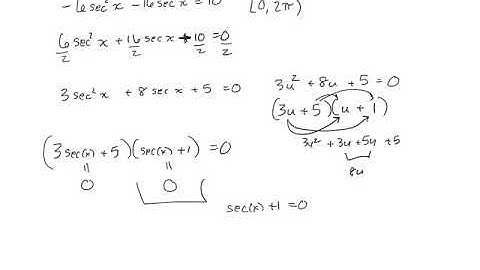 -6sec²x -16secx = 10 [0, 2π)
6/2 sec²x + 16/2 secx + 10/2 = 0/2
3sec²x + 8secx + 5 = 0
3u² + 8u + 5 = 0
(3u + 5)(u + 1)
3u² + 3u + 5u + 5
8u
(3sec(x) + 5)(sec(x) + 1) = 0
= =
0 0
sec(x) + 1 = 0